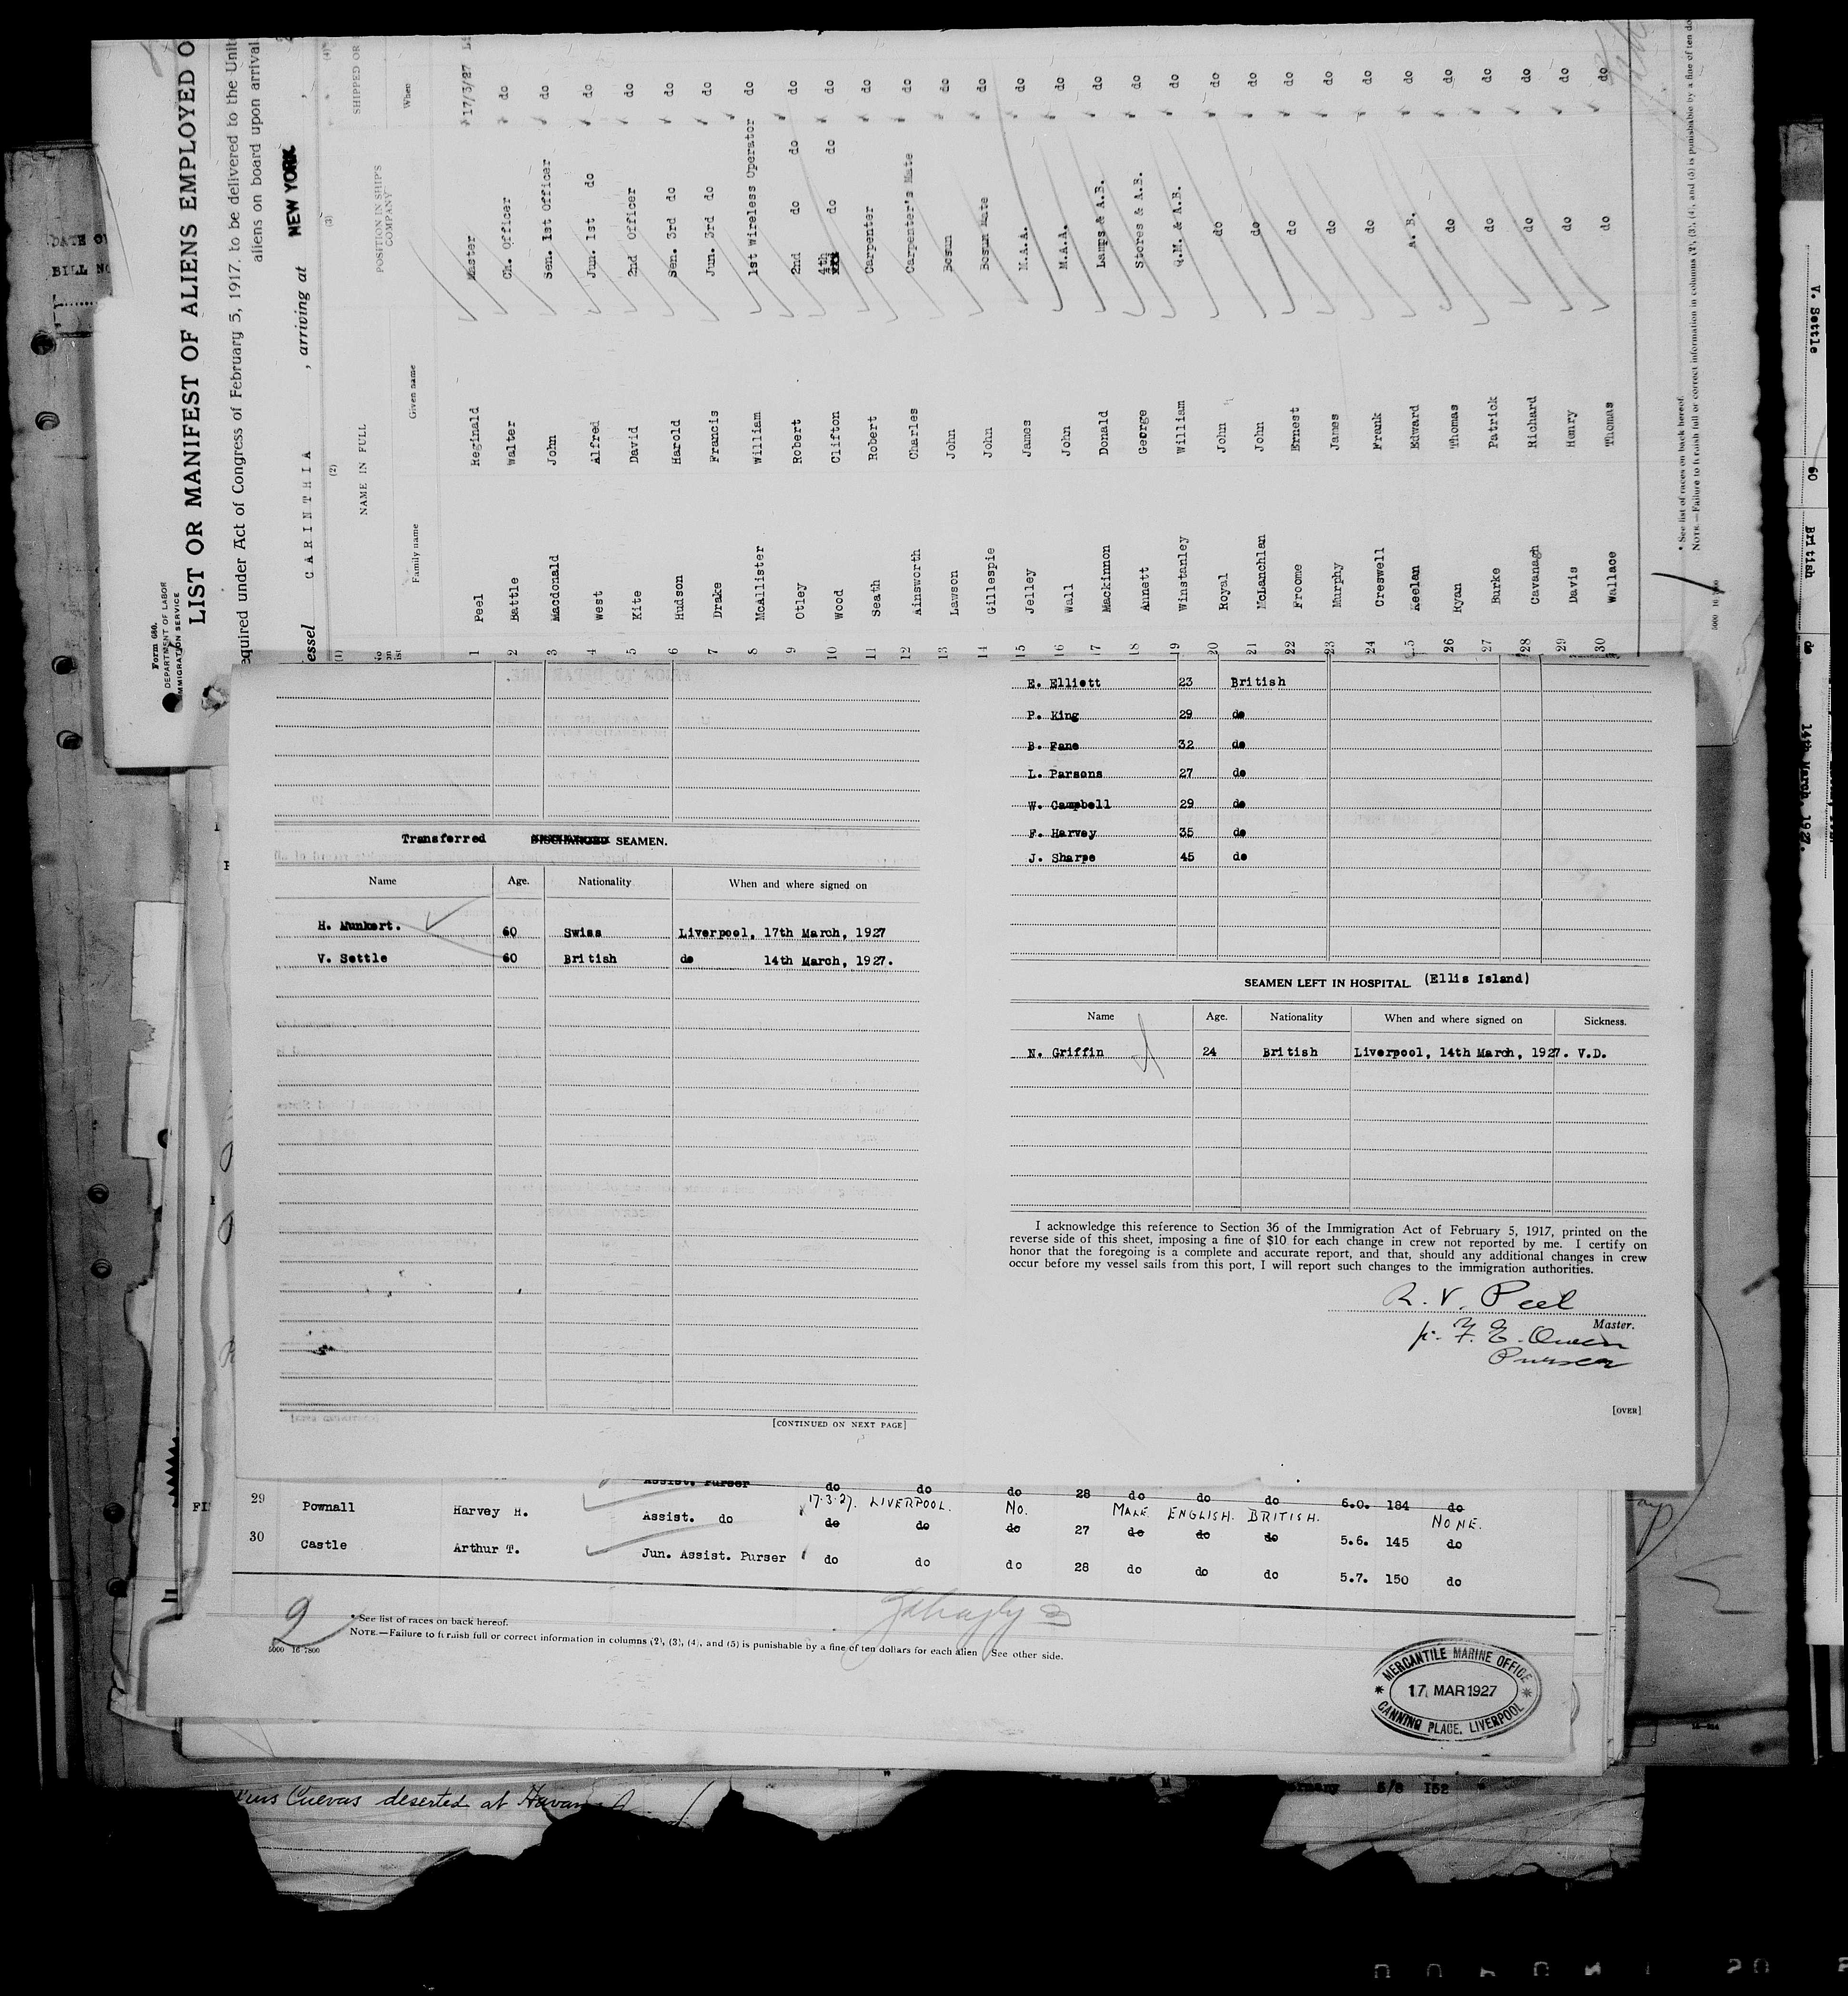 Form 680.
DEPARTMENT OF LABOR
IMMIGRATION SERVICE
LIST OR MANIFEST OF ALIENS EMPLOYED O
equired under Act of Congress of February 5, 1917, to be delivered to the Unit
aliens on board upon arrival
essel CARINTHIA , arriving at NEW YORK ,
(1) (2) (3) (4)
NAME IN FULL POSITION IN SHIP'S COMPANY SHIPPED OR
Family name Given name When
1 Peel Reginald Master 17/3/27
2 Battle Walter Ch. Officer do
3 Macdonald John Sen. 1st Officer do
4 West Alfred Jun. 1st do do
5 Kite David 2nd Officer do
6 Hudson Harold Sen. 3rd do do
7 Drake Francis Jun. 3rd do do
8 McAllister William 1st Wireless Operator do
9 Otley Robert 2nd do do do
10 Wood Clifton 4th do do do
11 Seath Robert Carpenter do
12 Ainsworth Charles Carpenter's Mate do
13 Lawson John Bosun do
14 Gillespie John Bosun Mate do
15 Jelley James M.A.A. do
16 Wall John M.A.A. do
17 Mackinnon Donald Lamps & A.B. do
18 Annett George Stores & A.B. do
19 Winstanley William Q.M. & A.B. do
20 Royal John do do
21 McLanchlan John do do
22 Froome Ernest do do
23 Murphy James do do
24 Creswell Frank do do
25 Keelan Edward A. B. do
26 Ryan Thomas do do
27 Burke Patrick do do
28 Cavanagh Richard do do
29 Davis Henry do do
30 Wallace Thomas do do
* See list of races on back hereof.
NOTE.—Failure to furnish full or correct information in columns (2), (3), (4), and (5) is punishable by a fine of ten do
Transferred DISCHARGED SEAMEN.
Name Age. Nationality When and where signed on
H. Munkert. 60 Swiss Liverpool, 17th March, 1927
V. Settle 60 British do 14th March, 1927.
[CONTINUED ON NEXT PAGE]
E. Elliott 23 British
P. King 29 do
B. Fane 32 do
L. Parsons 27 do
W. Campbell 29 do
F. Harvey 35 do
J. Sharpe 45 do
SEAMEN LEFT IN HOSPITAL. (Ellis Island)
Name Age. Nationality When and where signed on Sickness.
N. Griffin 24 British Liverpool, 14th March, 1927. V.D.
I acknowledge this reference to Section 36 of the Immigration Act of February 5, 1917, printed on the
reverse side of this sheet, imposing a fine of $10 for each change in crew not reported by me. I certify on
honor that the foregoing is a complete and accurate report, and that, should any additional changes in crew
occur before my vessel sails from this port, I will report such changes to the immigration authorities.
R. V. Peel
Master.
p. F. E. Owen
Purser
[OVER]
Assist. Purser do do 28 do do do 6.0. 184 do
17.3.27. LIVERPOOL. No. MALE ENGLISH. BRITISH. NONE.
29 Pownall Harvey H. Assist. do do do do 27 do do do 5.6. 145 do
30 Castle Arthur T. Jun. Assist. Purser do do do 28 do do do 5.7. 150 do
2
* See list of races on back hereof.
NOTE.—Failure to furnish full or correct information in columns (2), (3), (4), and (5) is punishable by a fine of ten dollars for each alien See other side.
MERCANTILE MARINE OFFICE
17 MAR 1927
CANNING PLACE, LIVERPOOL
Cuevas deserted at Havana
5/8 152 "
V. Settle 60 British do 14th March, 1927.